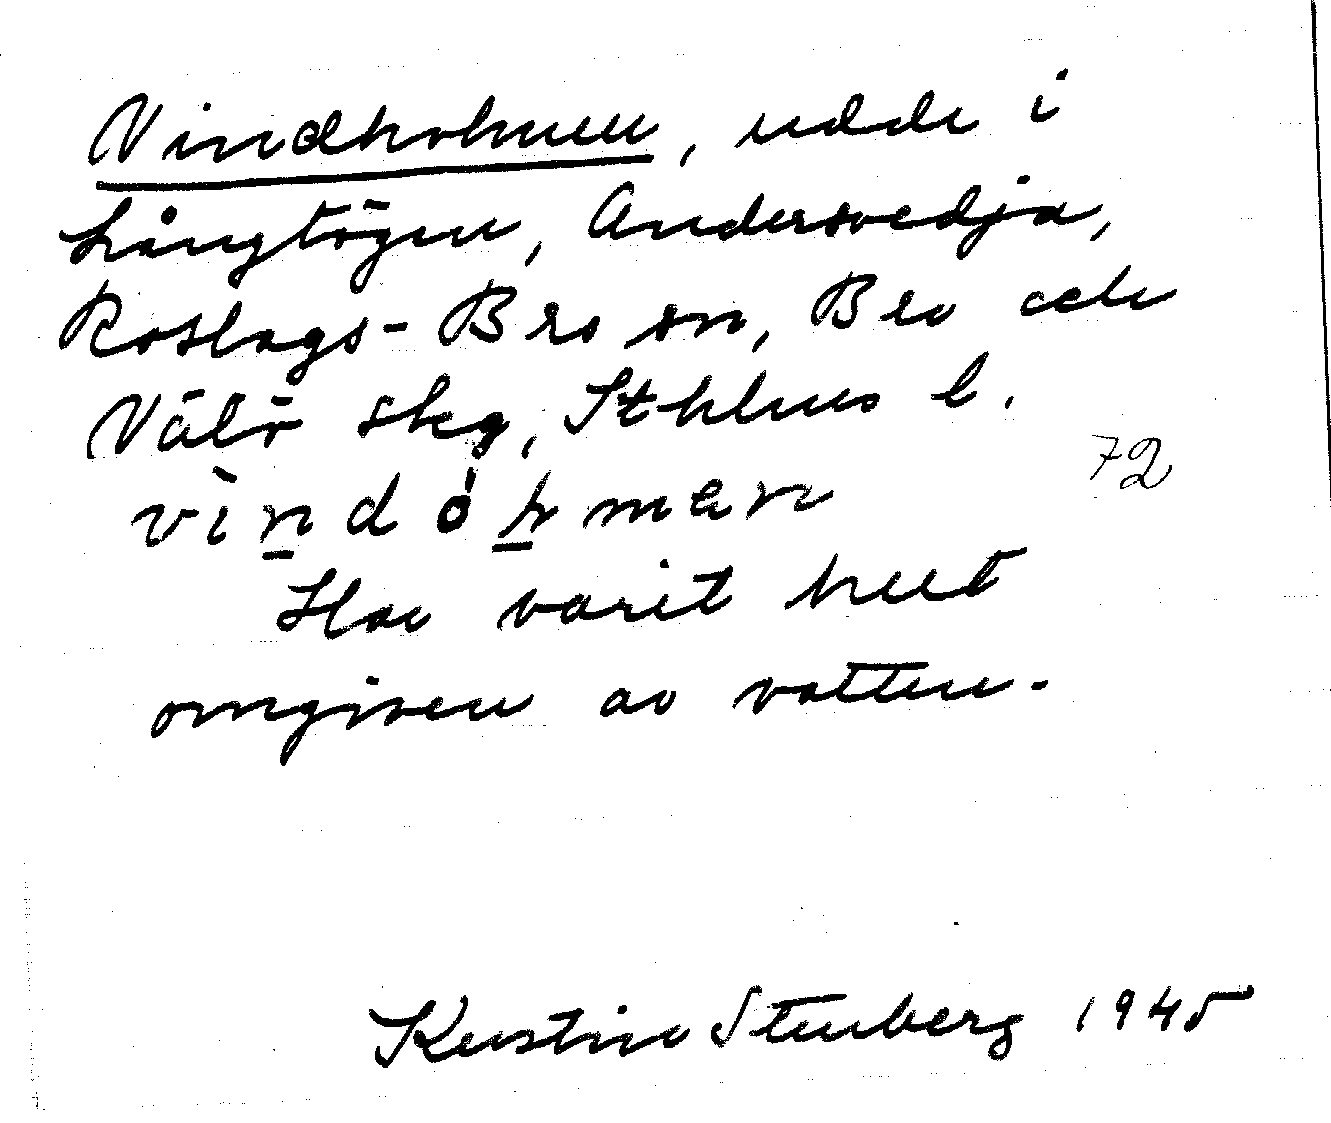 Vindholmen, udde i
Långtögen, Andersvedja,
Roslags-Bro sn, Bro och
Vätö skg, Sthlms l.
vìndóḻman
72
Har varit helt
omgiven av vatten.
Kerstin Stenberg 1945